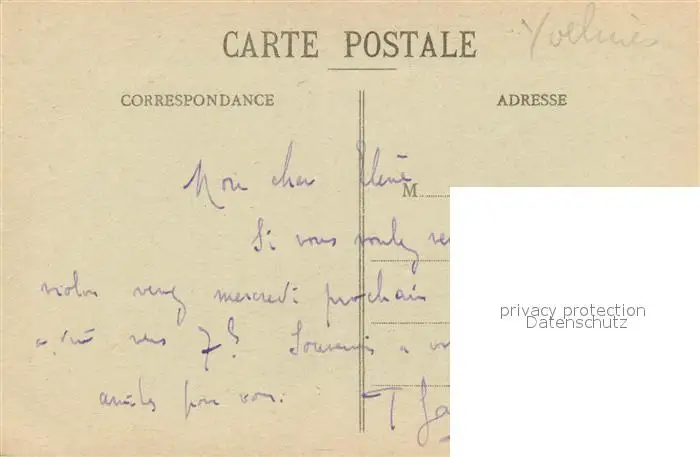 Yvelines
CARTE POSTALE
CORRESPONDANCE
ADRESSE
Mon cher
M.
Si vous voulez
violon venez mercredi prochain
vers 7h Souvenirs a
amitiés pour vous.
privacy protection
Datenschutz